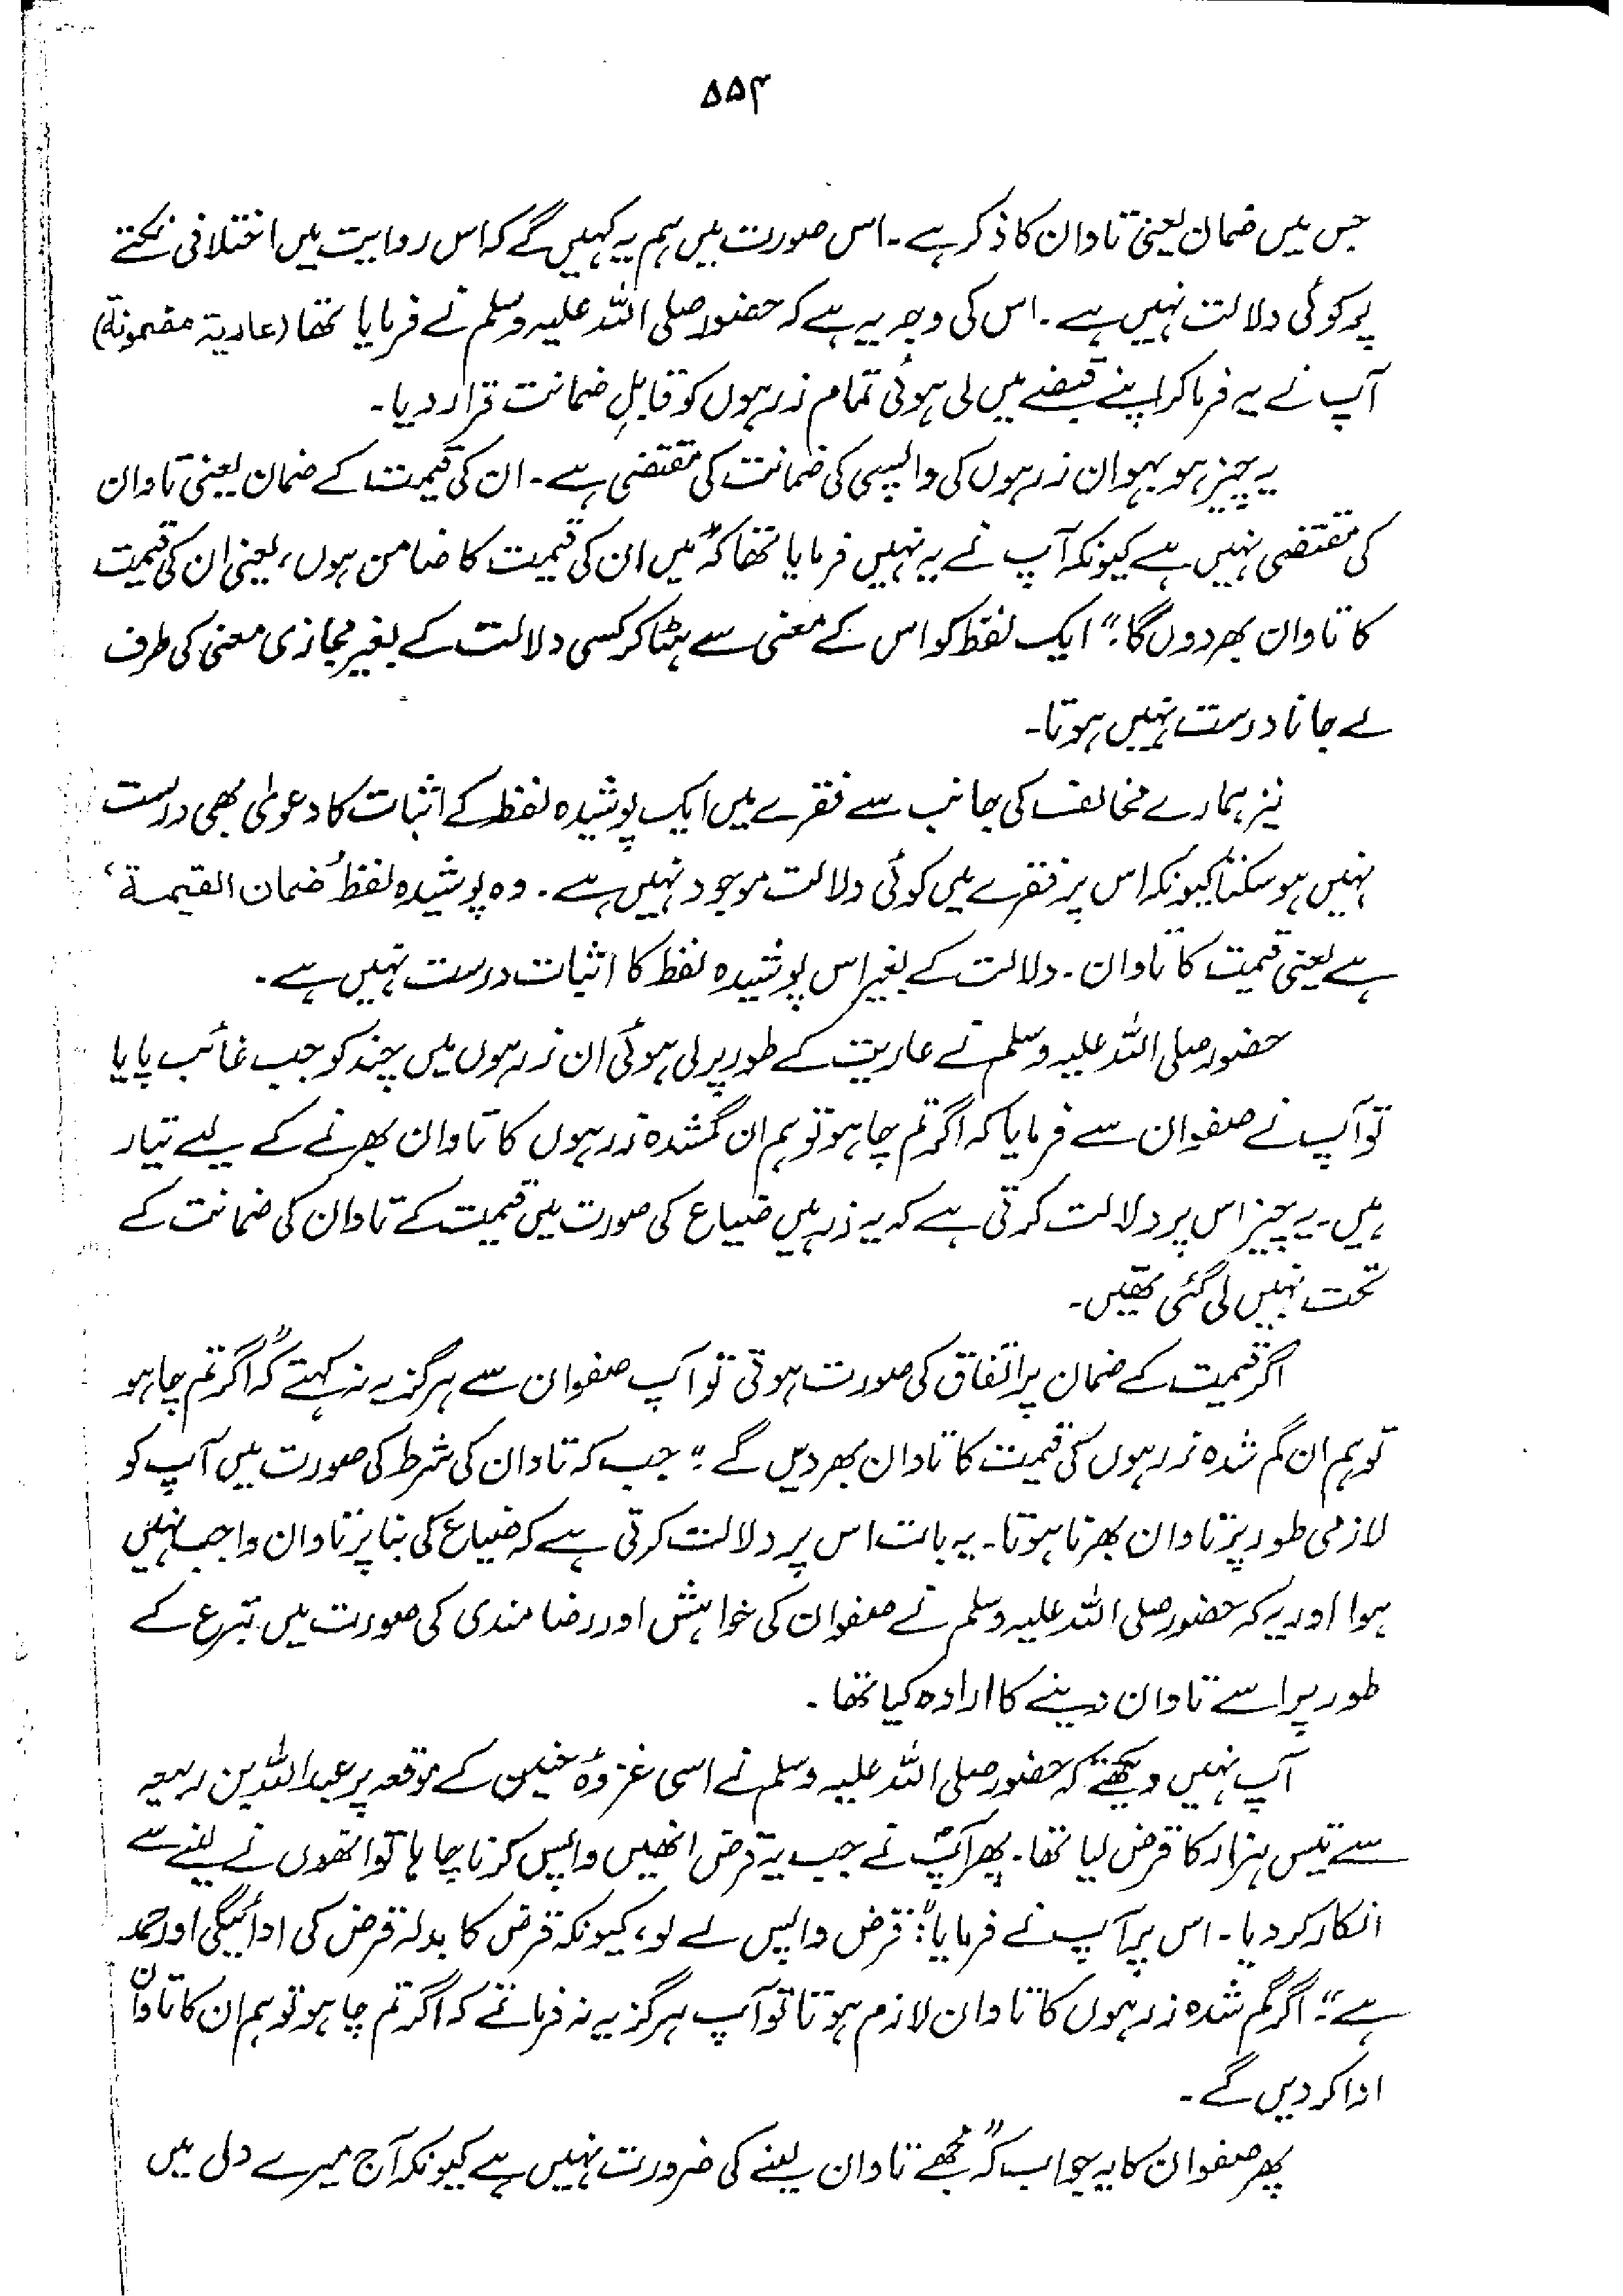 ۵۵۴
جس میں ضمان یعنی تاوان کا ذکر ہے۔ اس صورت میں ہم یہ کہیں گے کہ اس روایت میں اختلافی نکتے
پر کوئی دلالت نہیں ہے۔ اس کی وجہ یہ ہے کہ حضور صلی اللہ علیہ وسلم نے فرمایا تھا (عاریة مضمونة)
آپ نے یہ فرما کر اپنے قبضے میں لی ہوئی تمام زرہوں کو قابلِ ضمانت قرار دیا۔
یہ چیز ہو بہو ان زرہوں کی واپسی کی ضمانت کی مقتضی ہے۔ ان کی قیمت کے ضمان یعنی تاوان
کی مقتضی نہیں ہے کیونکہ آپ نے یہ نہیں فرمایا تھا کہ "میں ان کی قیمت کا ضامن ہوں، یعنی ان کی قیمت
کا تاوان بھر دوں گا۔" ایک لفظ کو اس کے معنی سے ہٹا کر کسی دلالت کے بغیر مجازی معنی کی طرف
لے جانا درست نہیں ہوتا۔
نیز ہمارے مخالف کی جانب سے فقرے میں ایک پوشیدہ لفظ کے اثبات کا دعویٰ بھی درست
نہیں ہو سکتا کیونکہ اس پر فقرے میں کوئی دلالت موجود نہیں ہے۔ وہ پوشیدہ لفظ 'ضمان القیمة'
ہے یعنی قیمت کا تاوان۔ دلالت کے بغیر اس پوشیدہ لفظ کا اثبات درست نہیں ہے۔
حضور صلی اللہ علیہ وسلم نے عاریت کے طور پر لی ہوئی ان زرہوں میں چند کو جب غائب پایا
تو آپ نے صفوان سے فرمایا کہ اگر تم چاہو تو ہم ان گمشدہ زرہوں کا تاوان بھرنے کے لیے تیار
ہیں۔ یہ چیز اس پر دلالت کرتی ہے کہ یہ زرہیں ضیاع کی صورت میں قیمت کے تاوان کی ضمانت کے
تحت نہیں لی گئی تھیں۔
اگر قیمت کے ضمان پر اتفاق کی صورت ہوتی تو آپ صفوان سے ہرگز یہ نہ کہتے کہ "اگر تم چاہو
تو ہم ان گم شدہ زرہوں کی قیمت کا تاوان بھر دیں گے۔" جب کہ تاوان کی شرط کی صورت میں آپ کو
لازمی طور پر تاوان بھرنا ہوتا۔ یہ بات اس پر دلالت کرتی ہے کہ ضیاع کی بنا پر تاوان واجب نہیں
ہوا اور یہ کہ حضور صلی اللہ علیہ وسلم نے صفوان کی خواہش اور رضا مندی کی صورت میں تبرع کے
طور پر اسے تاوان دینے کا ارادہ کیا تھا۔
آپ نہیں دیکھتے کہ حضور صلی اللہ علیہ وسلم نے اسی غزوۂ حنین کے موقعہ پر عبداللہ بن ربیعہ
سے تیس ہزار کا قرض لیا تھا۔ پھر آپؐ نے جب یہ قرض انھیں واپس کرنا چاہا تو انھوں نے لینے سے
انکار کر دیا۔ اس پر آپ نے فرمایا: "قرض واپس لے لو، کیونکہ قرض کا بدلہ قرض کی ادائیگی اور حمد
ہے۔" اگر گم شدہ زرہوں کا تاوان لازم ہوتا تو آپ ہرگز یہ نہ فرماتے کہ اگر تم چاہو تو ہم ان کا تاوان
ادا کر دیں گے۔
پھر صفوان کا یہ جواب کہ "مجھے تاوان لینے کی ضرورت نہیں ہے کیونکہ آج میرے دل میں